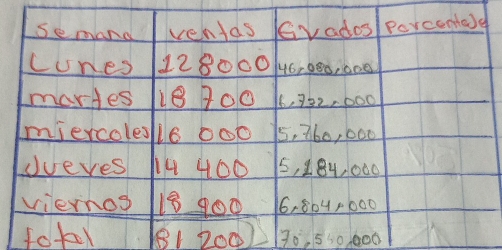 semana ventas Grados Porcentaje
Lunes 128000 46,080,000
martes 18 700 6,732,000
miercoles 16 000 5,760,000
Jueves 14 400 5,184,000
viernos 18 900 6,804,000
total 81 200 70,560,000